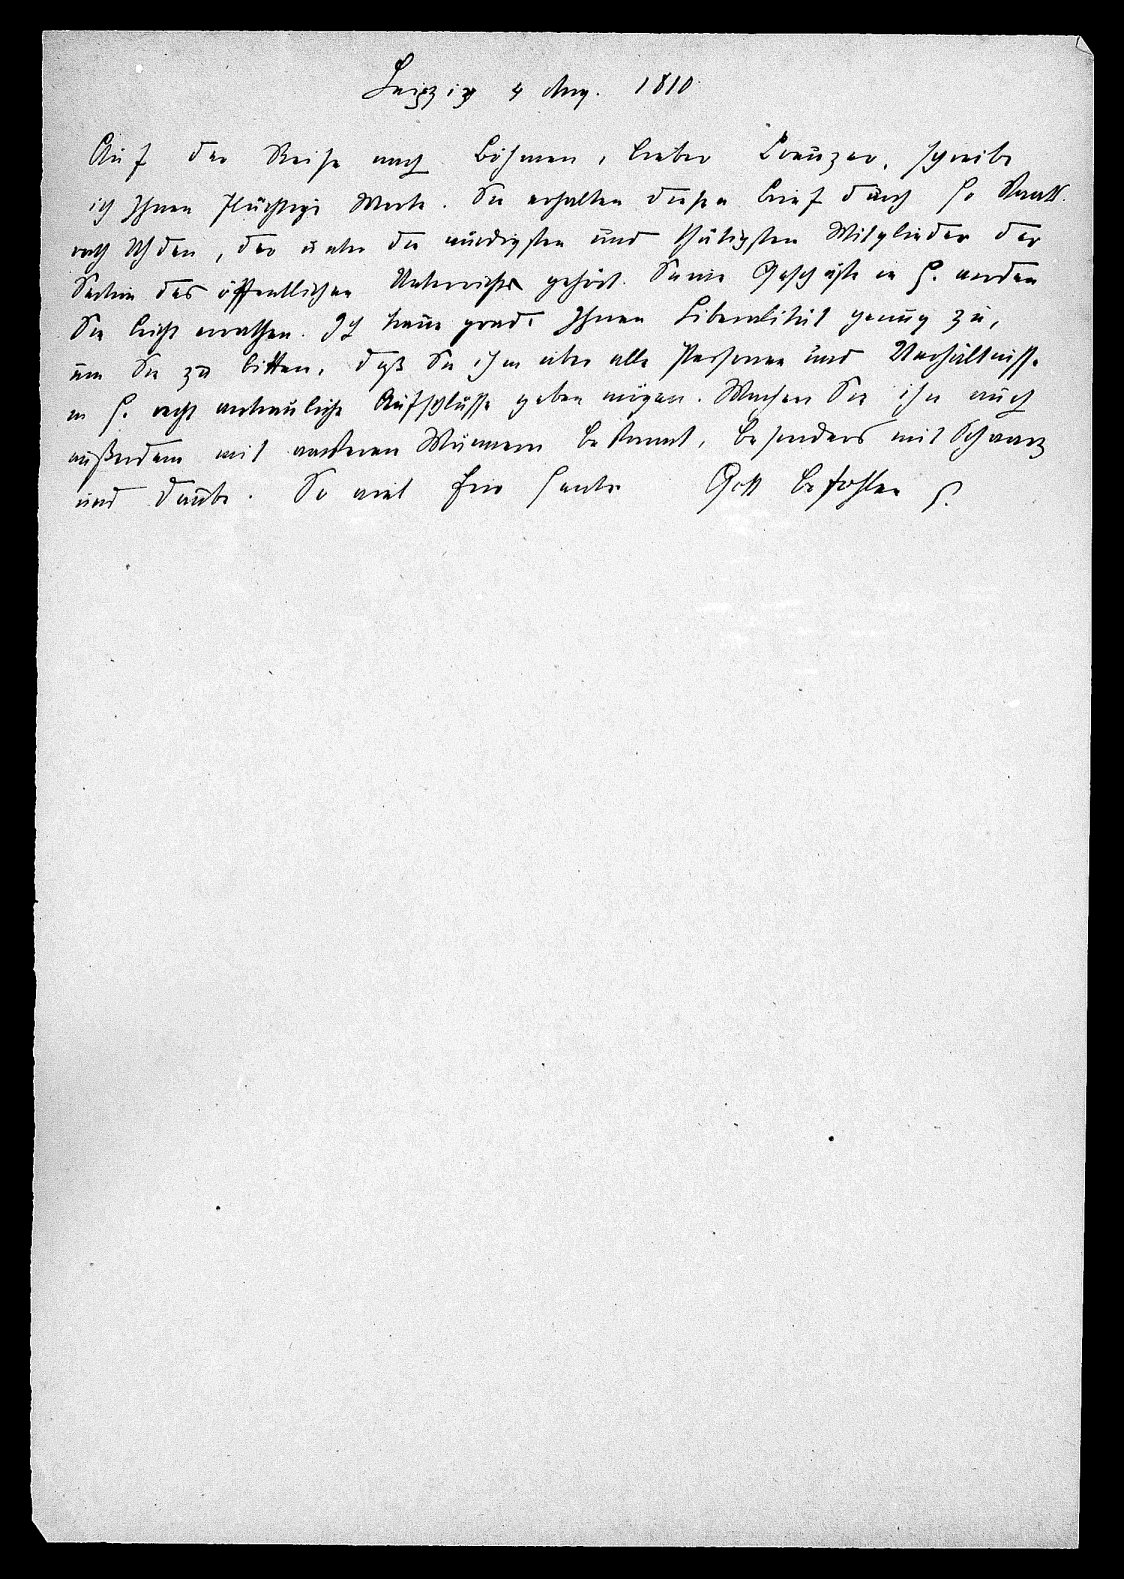 Leipzig 4 Aug. 1810
Auf der Reise nach Böhmen, lieber Creuzer, schreibe
ich Ihnen flüchtige Worte. Sie erhalten diesen Brief durch H. Staats
rath Uhden, der unter die würdigsten und thätigsten Mitglieder der
Section des öffentlichen Unterrichts gehört. Seine Geschäfte in H. werden
Sie leicht errathen. Ich traue grade Ihnen Liberalität genug zu,
um Sie zu bitten, daß Sie ihm über alle Personen und Verhältnisse
in H. recht vertrauliche Aufschlüsse geben mögen. Machen Sie ihn auch
außerdem mit wackeren Männern bekannt, besonders mit Schwarz
und Daub. So viel für heute Gott befohlen S.